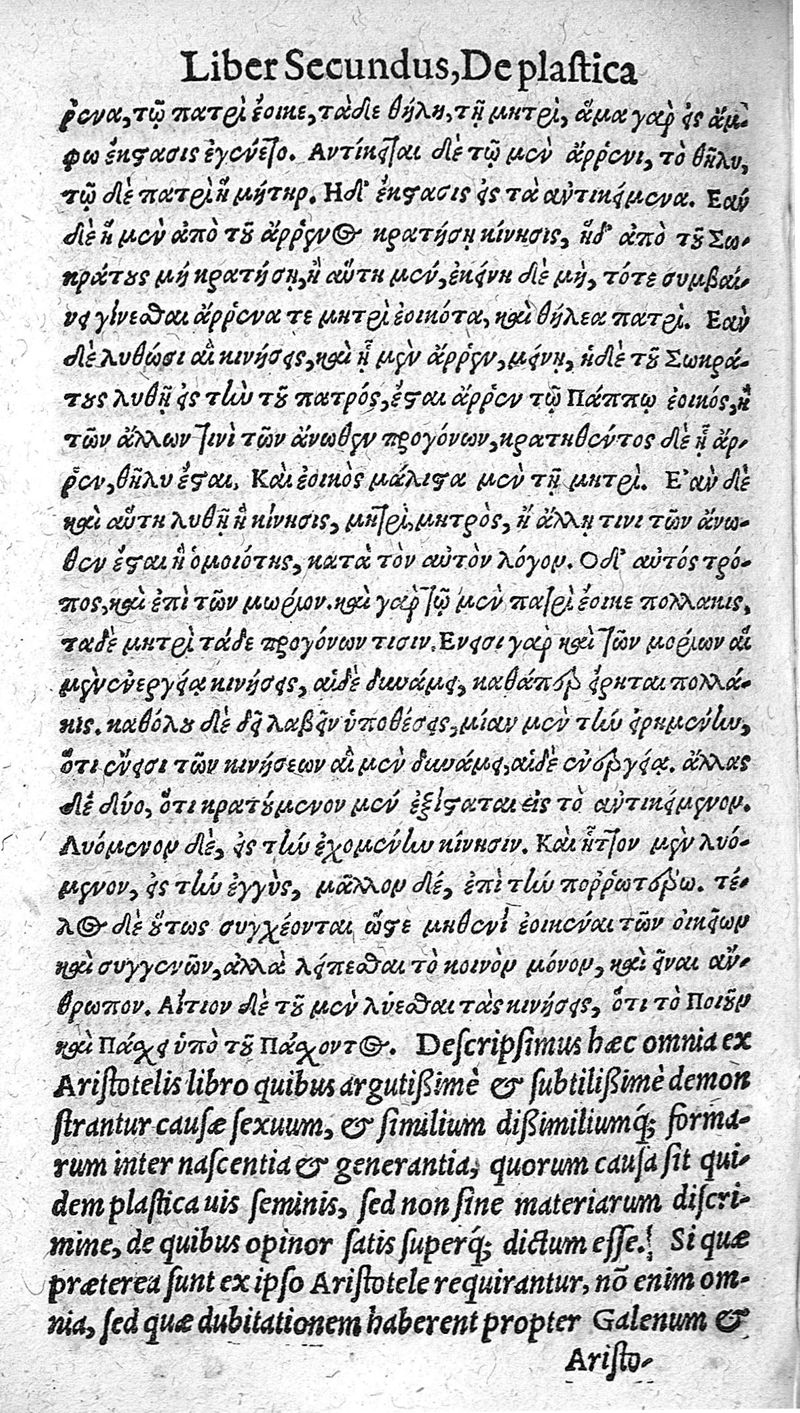 Liber Secundus, De plastica
ῤενα, τῷ πατρὶ ἔοικε, τὰ δὲ θήλη, τῇ μητρὶ, ἅμα γὰρ εἰς ἄμ-
φω ἔκστασις ἐγένετο. Αντίκειται δὲ τῷ μὲν ἄῤῥενι, τὸ θῆλυ,
τῷ δὲ πατρὶ ἡ μήτηρ. Ηδ' ἔκστασις εἰς τὰ αὐτικείμενα. Εαν
δὲ ἡ μὲν ἀπὸ τοῦ ἄῤῥενος κρατήσῃ κίνησις, ἡδ' ἀπὸ τοῦ Σω-
κράτους μή κρατήσῃ, ἢ αὕτη μέν, ἐκείνη δὲ μὴ, τότε συμβαί-
νει γίνεσθαι ἄῤῥενα τε μητρὶ ἐοικότα, καὶ θήλεα πατρὶ. Εαν
δὲ λυθῶσι αἱ κινήσεις, καὶ ᾗ μὲν ἄῤῥεν, μείνῃ, ἡ δὲ τοῦ Σωκρά-
τους λυθῇ εἰς τὴν τοῦ πατρός, ἔσται ἄῤῥεν τῷ Πάππῳ ἐοικός, ἢ
τῶν ἄλλων τινὶ τῶν ἄνωθεν προγόνων, κρατηθέντος δὲ ᾗ ἄρ-
ῥεν, θῆλυ ἔσται. Καὶ ἐοικὸς μάλιστα μὲν τῇ μητρὶ. Ε'αν δὲ
καὶ αὕτη λυθῇ ἡ κίνησις, μητρὶ, μητρὸς, ἢ ἄλλῃ τινι τῶν ἄνω-
θεν ἔσται ἡ ὁμοιότης, κατὰ τὸν αὐτὸν λόγον. Οδ' αὐτός τρό-
πος, καὶ ἐπὶ τῶν μωρίον. καὶ γὰρ τῷ μὲν πατρὶ ἔοικε πολλακις,
ταδὲ μητρὶ τάδε προγόνων τισιν. Ενεισι γὰρ καὶ τῶν μορίων αἱ
μὲν ἐνεργείᾳ κινήσεις, αἱδὲ δυνάμει, καθάπερ εἴρηται πολλά-
κις. καθόλου δὲ δεῖ λαβεῖν ὑποθέσεις, μίαν μὲν τὴν εἰρημένην,
ὅτι ἔνεισι τῶν κινήσεων αἱ μὲν δυνάμει, αἱδὲ ἐνεργείᾳ. ἄλλας
δὲ δύο, ὅτι κρατούμενον μὲν ἐξίσταται εἰς τὸ αὐτικείμενον.
Λυόμενον δὲ, εἰς τὴν ἐχομένην κίνησιν. Καὶ ἧττον μὲν λυό-
μενον, εἰς τὴν ἐγγὺς, μᾶλλον δέ, ἐπὶ τὴν ποῤῥωτέρω. τέ-
λος δὲ οὕτως συγχέονται ὥστε μηθενὶ ἐοικέναι τῶν οἰκείων
καὶ συγγενῶν, ἀλλὰ λείπεσθαι τὸ κοινὸν μόνον, καὶ εἶναι ἄν-
θρωπον. Αἴτιον δὲ τοῦ μὲν λύεσθαι τὰς κινήσεις, ὅτι τὸ Ποιοῦν
καὶ Πάσχει ὑπὸ τοῦ Πάσχοντος. Descripsimus hæc omnia ex
Aristotelis libro quibus argutißimè & subtilißimè demon
strantur causæ sexuum, & similium dißimiliumq; forma-
rum inter nascentia & generantia, quorum causa sit qui-
dem plastica uis seminis, sed non sine materiarum discri-
mine, de quibus opinor satis superq́; dictum esse. Si quæ
præterea sunt ex ipso Aristotele requirantur, nō enim om-
nia, sed quæ dubitationem haberent propter Galenum &
Aristo-